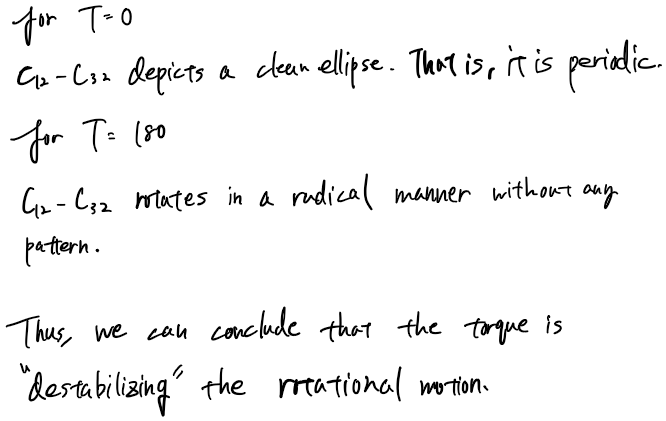 for T=0
C12-C32 depicts a clean ellipse. That is, it is periodic.
for T=180
C12-C32 rotates in a radical manner without any
pattern.
Thus, we can conclude that the torque is
"destabilizing" the rotational motion.